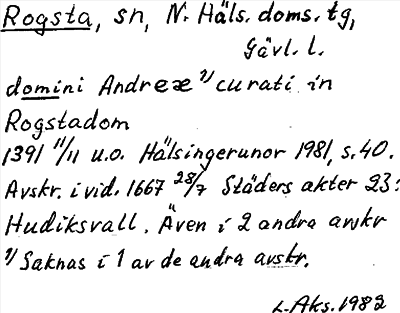 Rogsta, sn, N. Häls. doms. tg,
Gävl. l.
domini Andreæ 1) curati in
Rogstadom
1391 11/11 u.o. Hälsingerunor 1981, s. 40.
Avskr. i vid. 1667 28/7 Städers akter 23:
Hudiksvall. Även i 2 andra avskr
1) Saknas i 1 av de andra avskr.
L. Aks. 1982